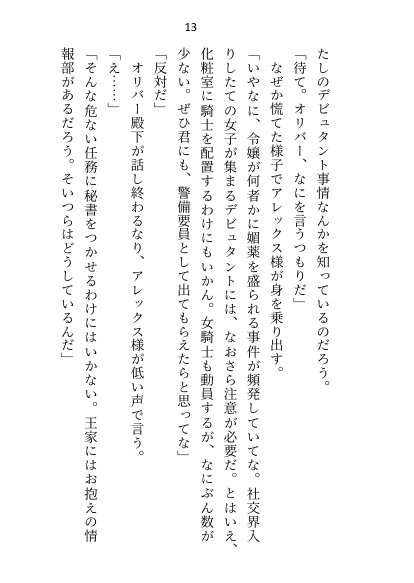 13
たしのデビュタント事情なんかを知っているのだろう。
「待て。オリバー、なにを言うつもりだ」
　なぜか慌てた様子でアレックス様が身を乗り出す。
「いやなに、令嬢が何者かに媚薬を盛られる事件が頻発していてな。社交界入
りしたての女子が集まるデビュタントには、なおさら注意が必要だ。とはいえ、
化粧室に騎士を配置するわけにもいかん。女騎士も動員するが、なにぶん数が
少ない。ぜひ君にも、警備要員として出てもらえたらと思ってな」
「反対だ」
「え……」
　オリバー殿下が話し終わるなり、アレックス様が低い声で言う。
「そんな危ない任務に秘書をつかせるわけにはいかない。王家にはお抱えの情
報部があるだろう。そいつらはどうしているんだ」